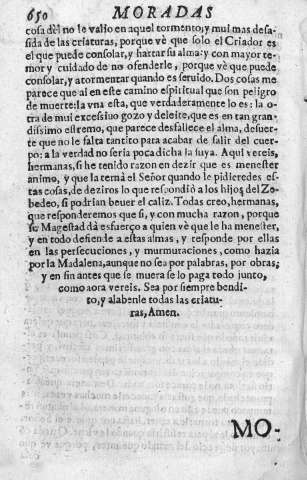 650 MORADAS
cosa dèl no le valio en aquel tormento; y mui mas desa-
sida de las criaturas, porque vè que solo el Criador es
el que puede consolar, y hartar su alma: y con mayor te-
mor y cuidado de no ofenderle, porque vè que puede
consolar, y atormentar quando es seruido. Dos cosas me
parece que al en este camino espiritual que son peligro
de muerte: la vna esta, que verdaderamente lo es: la o-
tra de mui excessiuo gozo y deleite, que es en tan gran-
dissimo estremo, que parece desfallece el alma, desuer-
te que no le falta tantito para acabar de salir del cuer-
po: a la verdad no seria poca dicha la suya. Aqui vereis,
hermanas, si he tenido razon en dezir que es menester
animo, y que la ternà el Señor quando le pidieredes es-
tas cosas, de deziros lo que respondiò a los hijos del Ze-
bedeo, si podrian beuer el caliz. Todas creo, hermanas,
que responderemos que si, y con mucha razon, porque
su Magestad dà esfuerço a quien vè que le ha menester,
y en todo defiende a estas almas, y responde por ellas
en las persecuciones, y murmuraciones, como hazia
por la Madalena, aunque no sea por palabras, por obras;
y en fin antes que se muera se lo paga todo junto,
como aora vereis. Sea por siempre bendi-
to, y alabenle todas las criatu-
ras, Amen.
MO-